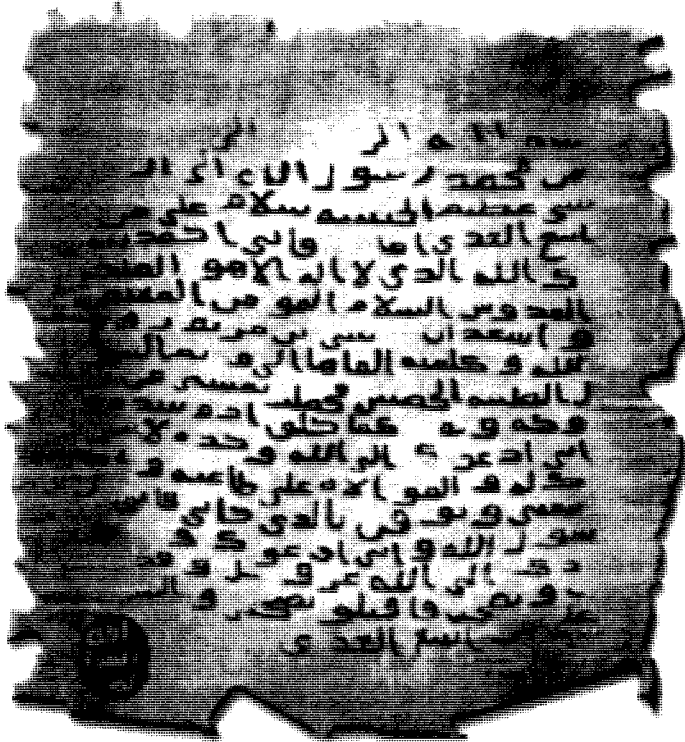 بسم الله الر الر
من محمد رسول الله الى ال
شي عظيم الحبشه سلام على من
اتبع الهدى اما و اني احمد
ك الله الذي لا اله الا هو الملك
القدوس السلام المومن المهيمن
و اشهد ان عيسى بن مريم روح
الله و كلمته القاها الى مريم البتو
ل الطيبه الحصينه فحملت بعيسى من
روحه و كما خلق ادم بيده
اني ادعو الى الله وحده لا
ك له و المو الاه على طاعته و
تتبعني و توقن بالذي جاني فاني
رسول الله و اني ادعوك و
الى الله عز و جل و قد
و نصحت فاقبلو نصحي و السلا
على من اتبع الهدى